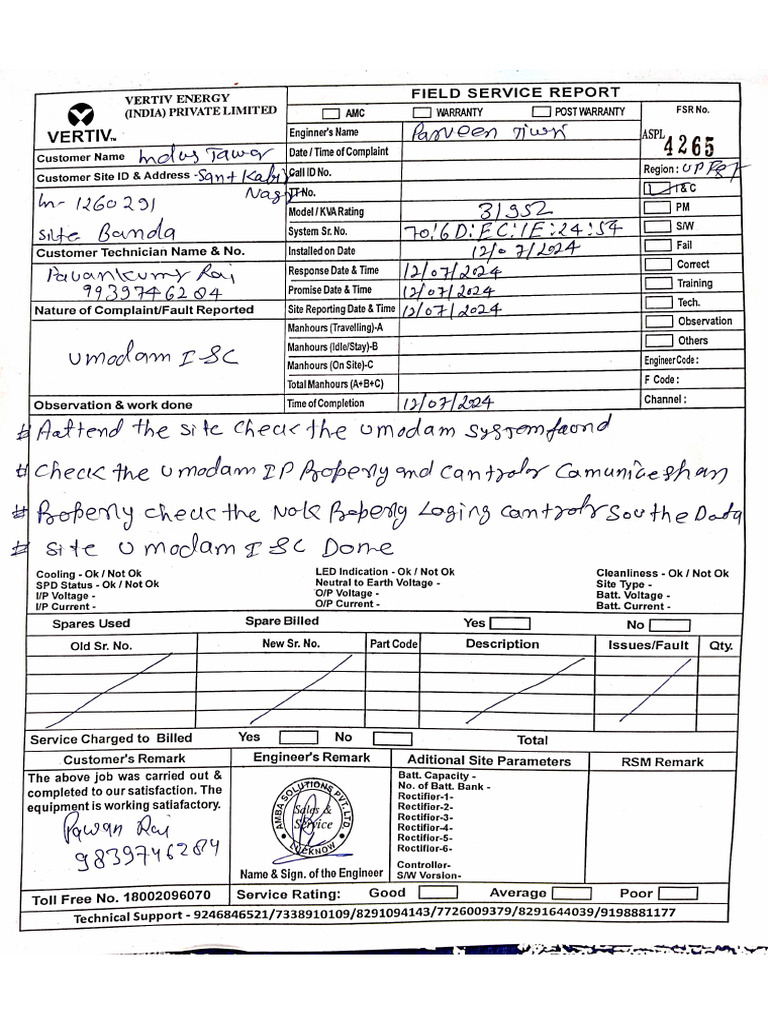 VERTIV ENERGY
(INDIA) PRIVATE LIMITED
VERTIV™
FIELD SERVICE REPORT
AMC WARRANTY POST WARRANTY
FSR No.
ASPL
4265
Enginner's Name Parveen Tiwri
Customer Name Indus Tawar
Date / Time of Complaint
Customer Site ID & Address - Sant Kabir
Nagar
Call ID No.
Region: UP
In- 1260291
TT No.
I&C
Site Banda
Model / KVA Rating 31952
PM
System Sr. No. 70:6D:EC:1E:24:54
S/W
Customer Technician Name & No.
Installed on Date 12/07/2024
Fail
Pavankumr Rai
9939746284
Response Date & Time 12/07/2024
Correct
Promise Date & Time 12/07/2024
Training
Nature of Complaint/Fault Reported
Site Reporting Date & Time 12/07/2024
Tech.
Manhours (Travelling)-A
Observation
Umodam I&C
Manhours (Idle/Stay)-B
Others
Manhours (On Site)-C
Engineer Code :
Total Manhours (A+B+C)
F Code :
Observation & work done
Time of Completion 12/07/2024
Channel :
# Aattend the site check the umodam system faornd
# Check the umodam IP Properly and Cantrolor Camuniceshan
# Properly check the Nok Properly Loging cantrolr Southe Data
# Site umodam I&C Done
Cooling - Ok / Not Ok LED Indication - Ok / Not Ok Cleanliness - Ok / Not Ok
SPD Status - Ok / Not Ok Neutral to Earth Voltage - Site Type -
I/P Voltage - O/P Voltage - Batt. Voltage -
I/P Current - O/P Current - Batt. Current -
Spares Used Spare Billed Yes No
Old Sr. No. New Sr. No. Part Code Description Issues/Fault Qty.
Service Charged to Billed Yes No Total
Customer's Remark Engineer's Remark Aditional Site Parameters RSM Remark
The above job was carried out &
completed to our satisfaction. The
equipment is working satiafactory.
Pawan Rai
9839746284
AMBA SOLUTIONS PVT. LTD.
Sales &
Service
LUCKNOW
Name & Sign. of the Engineer
Batt. Capacity -
No. of Batt. Bank -
Rectifier-1-
Rectifier-2-
Rectifier-3-
Rectifier-4-
Rectifier-5-
Rectifier-6-
Controller-
S/W Version-
Toll Free No. 18002096070 Service Rating: Good Average Poor
Technical Support - 9246846521/7338910109/8291094143/7726009379/8291644039/9198881177